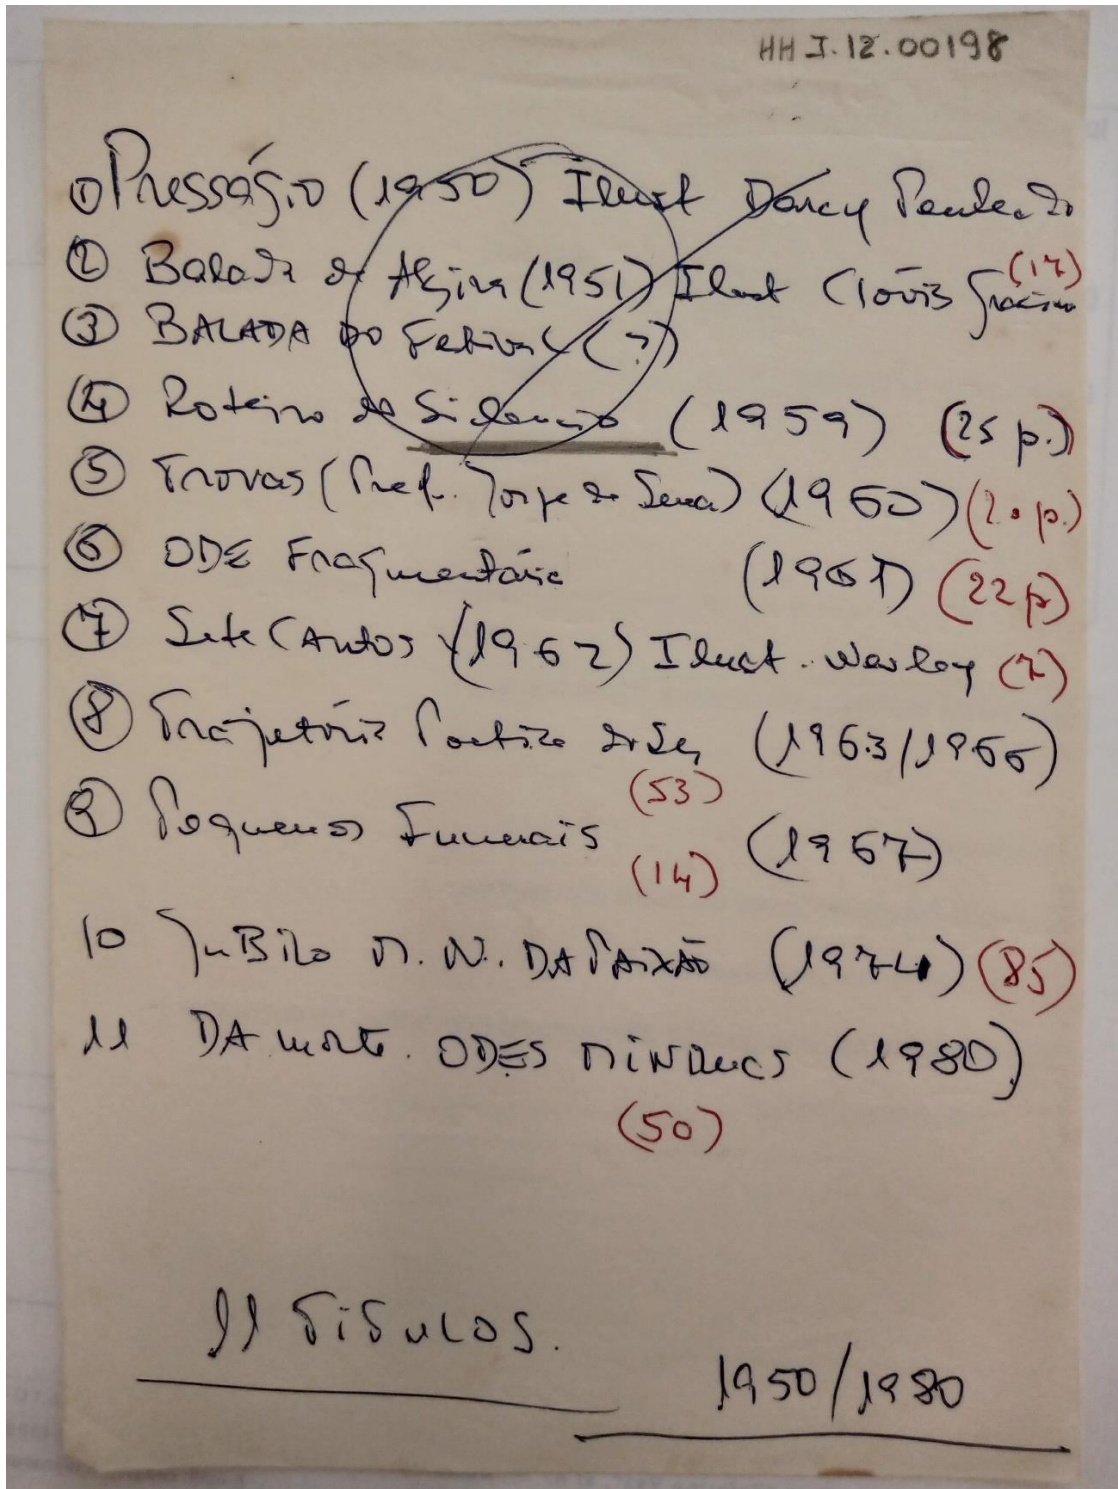 HH I.12.00198
① Presságio (1950) Ilust Darcy Penteado
② Balada de Alzira (1951) Ilust Clóvis Graciano (17)
③ BALADA DO Festival (?)
④ Roteiro do Silencio (1959) (25 p.)
⑤ Trovas (Pref. Jorge de Sena) (1960) (20 p.)
⑥ ODE Fragmentária (1961) (22 p)
⑦ Sete Cantos (1962) Ilust. Wesley (7)
⑧ Trajetória Poética do Ser (1963/1966)
(53)
⑨ Pequenos Funerais (1967)
(14)
10 JuBilo M. N. DA PAIXÃO (1974) (85)
11 DA morte. ODES MíNimas (1980)
(50)
11 TíTuLOS.
1950/1980